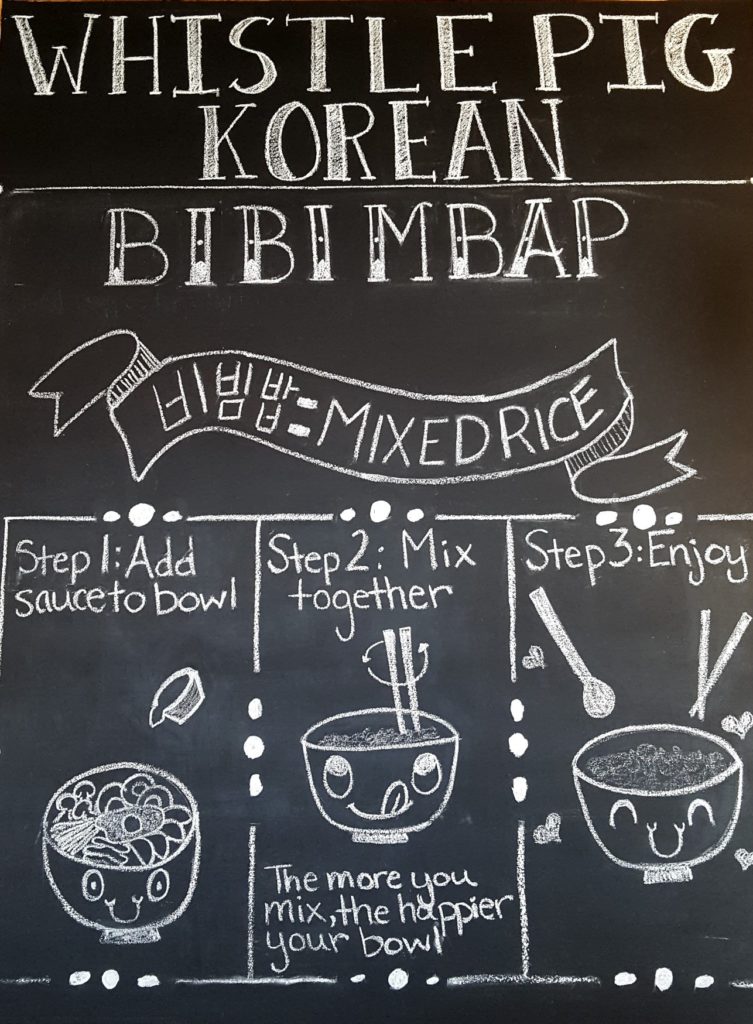 WHISTLE PIG
KOREAN
BIBIMBAP
비빔밥=MIXED RICE
Step 1: Add
sauce to bowl
Step 2: Mix
together
The more you
mix, the happier
your bowl
Step 3: Enjoy